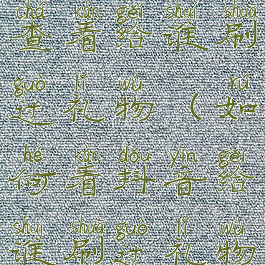 chá kàn gěi shuí shuā
查看给谁刷
guò lǐ wù rú
过礼物（如
hé kàn dǒu yīn gěi
何看抖音给
shuí shuā guò lǐ wù
谁刷过礼物